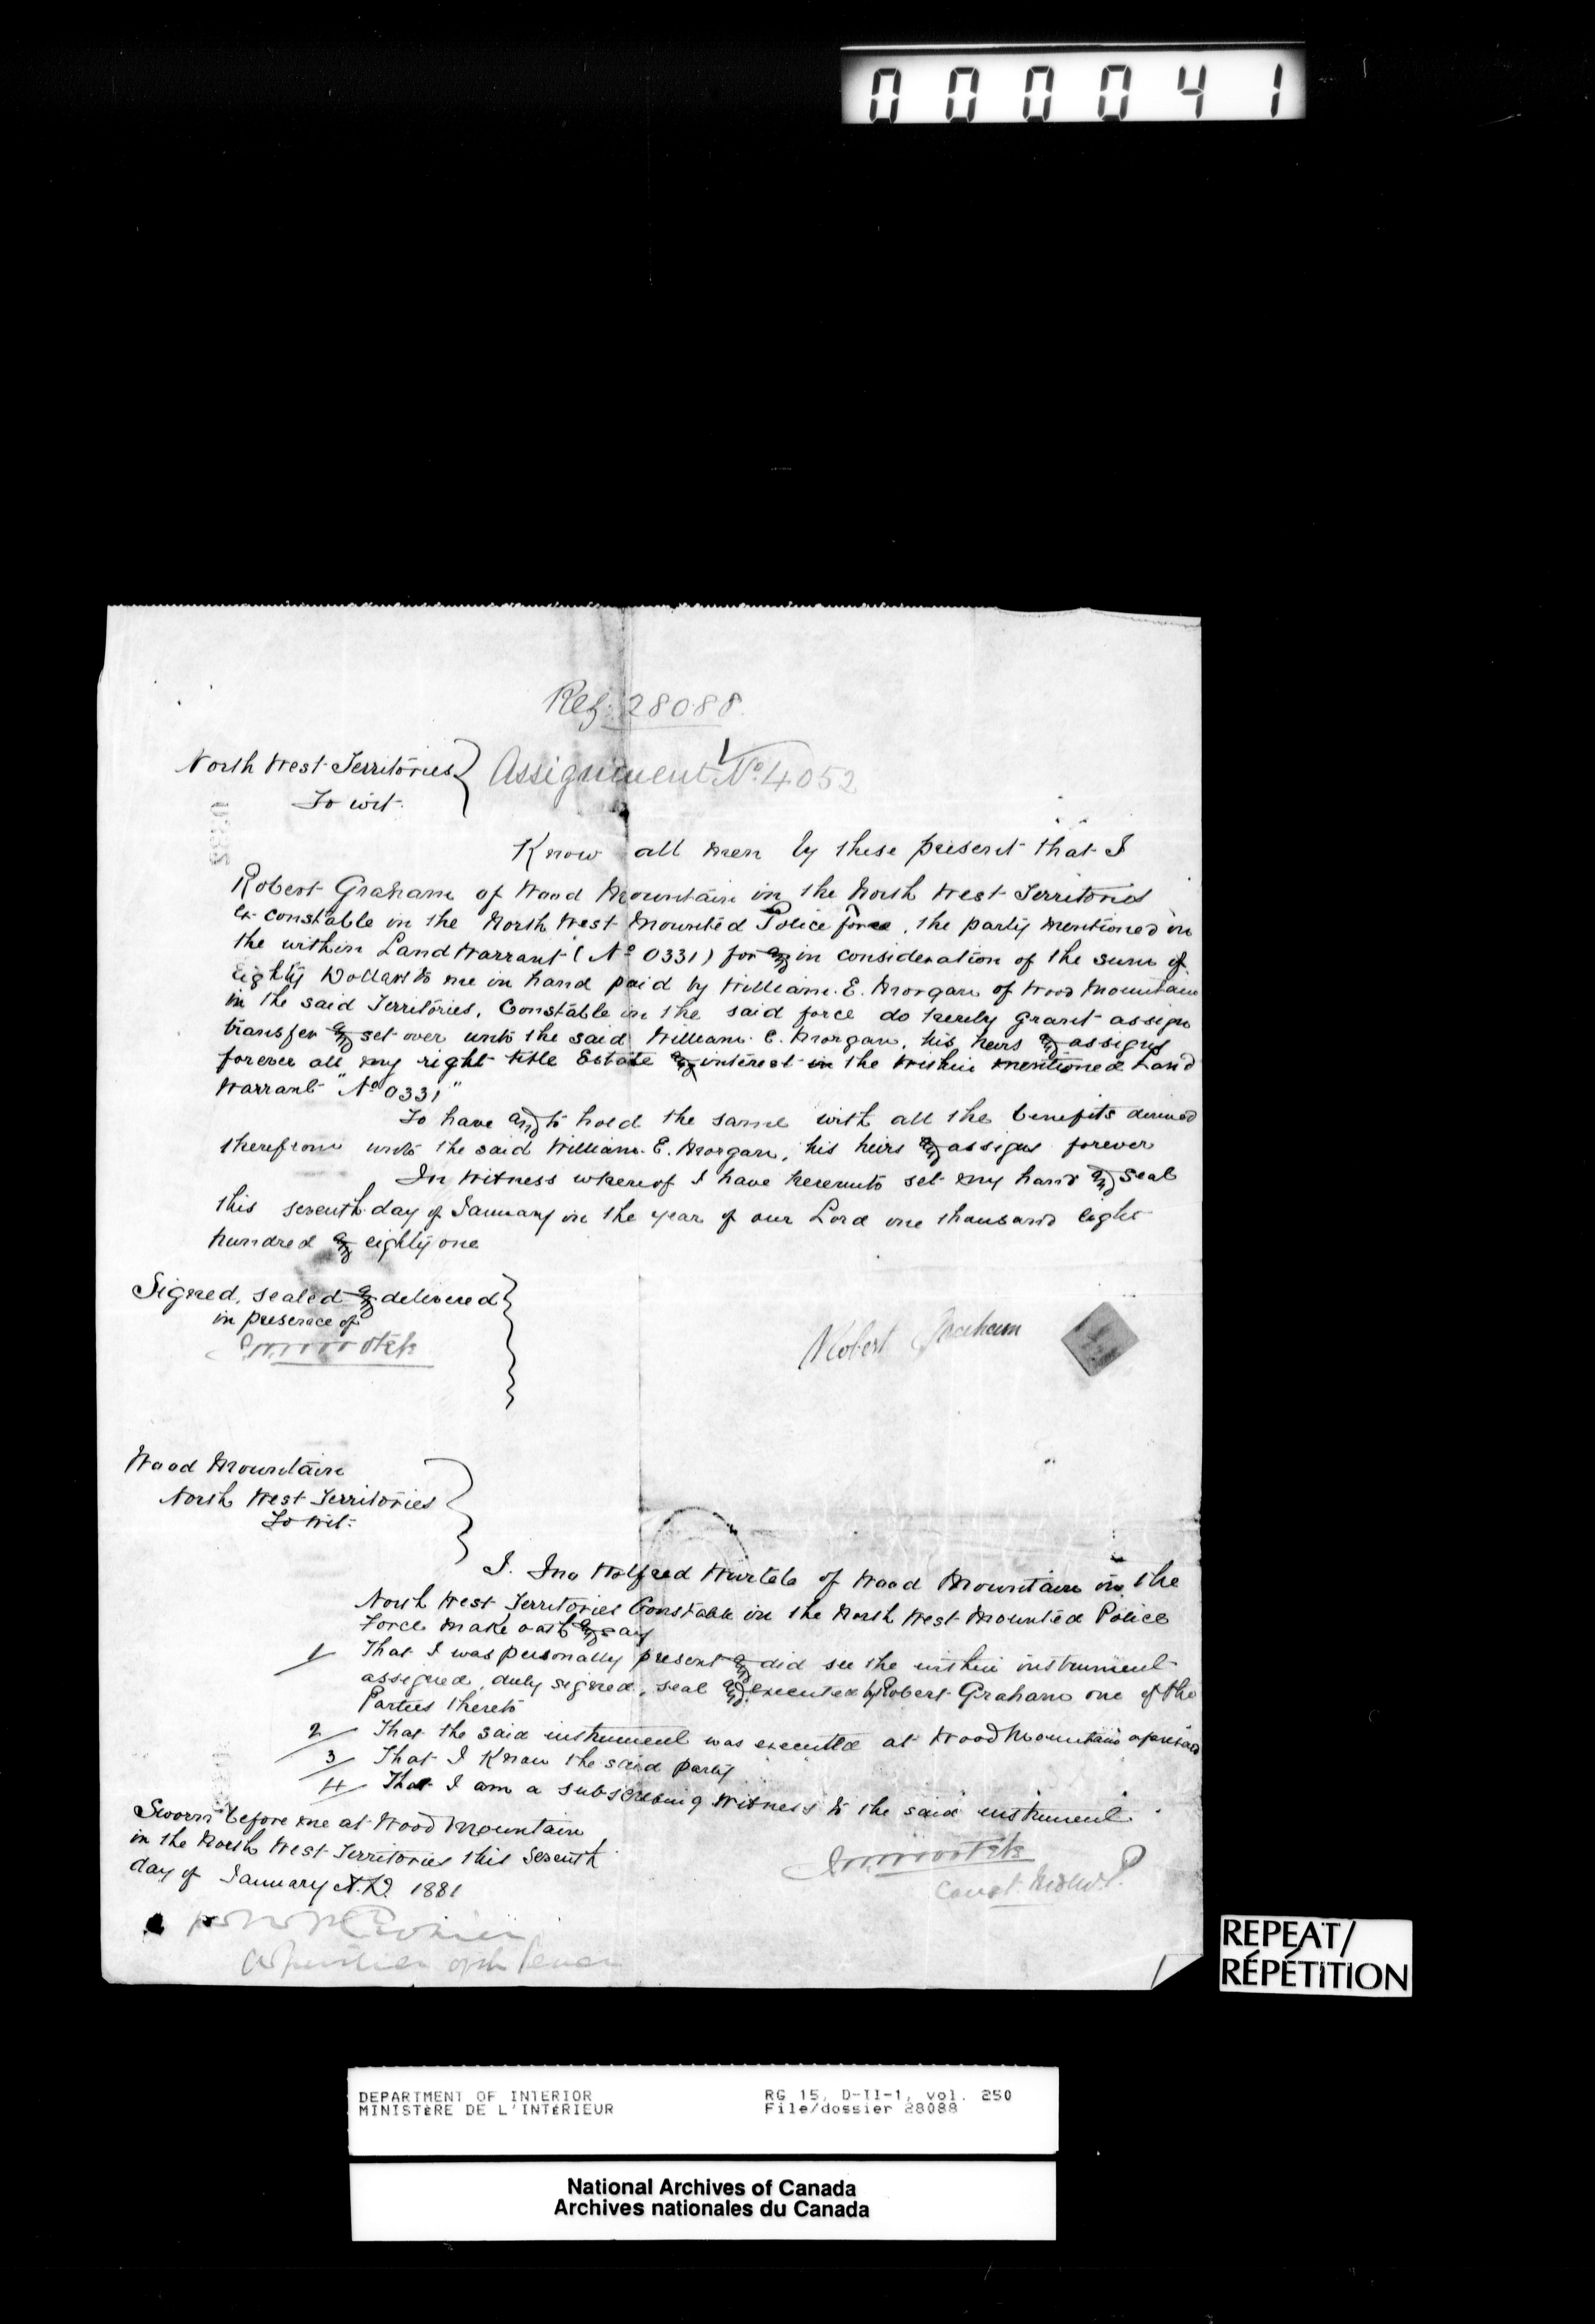 000041
Ref. 28088
North West Territories
To wit.
Assignment No. 4052
Know all men by these present that I
Robert Graham of Wood Mountain in the North West Territories
Ex constable in the North West Mounted Police force, the party mentioned in
the within Land Warrant (No 0331) for and in consideration of the sum of
Eighty Dollars to me in hand paid by William. E. Morgan of Wood Mountain
in the said Territories, Constable in the said force do hereby grant assign
transfer and set over unto the said William. E. Morgan, his heirs and assigns
forever all my right title Estate and interest in the within mentioned Land
Warrant "No 0331"
To have and to hold the same with all the benefits derived
therefrom unto the said William. E. Morgan, his heirs and assigns forever
In Witness whereof I have hereunto set my hand and seal
this seventh day of January in the year of our Lord one thousand eight
hundred and eighty one
Signed, sealed and delivered
in presence of
Robert Graham
Wood Mountain
North West Territories
To Wit:
I. Jno Wolfred Wurtele of Wood Mountain in the
North West Territories Constable in the North West Mounted Police
Force make oath and say
1/ That I was personally present and did see the within instrument
assigned, duly signed, seal and executed by Robert Graham one of the
Parties thereto
2/ That the said instrument was executed at Wood Mountain aforesaid
3/ That I Know the said party
4/ That I am a subscribing Witness to the said instrument.
Sworn before me at Wood Mountain
in the North West Territories this Seventh
day of January A.D. 1881
Const. N.W.M.P.
REPEAT/
RÉPÉTITION
DEPARTMENT OF INTERIOR
MINISTÈRE DE L'INTÉRIEUR
RG 15, D-II-1, vol. 250
File/dossier 28088
National Archives of Canada
Archives nationales du Canada